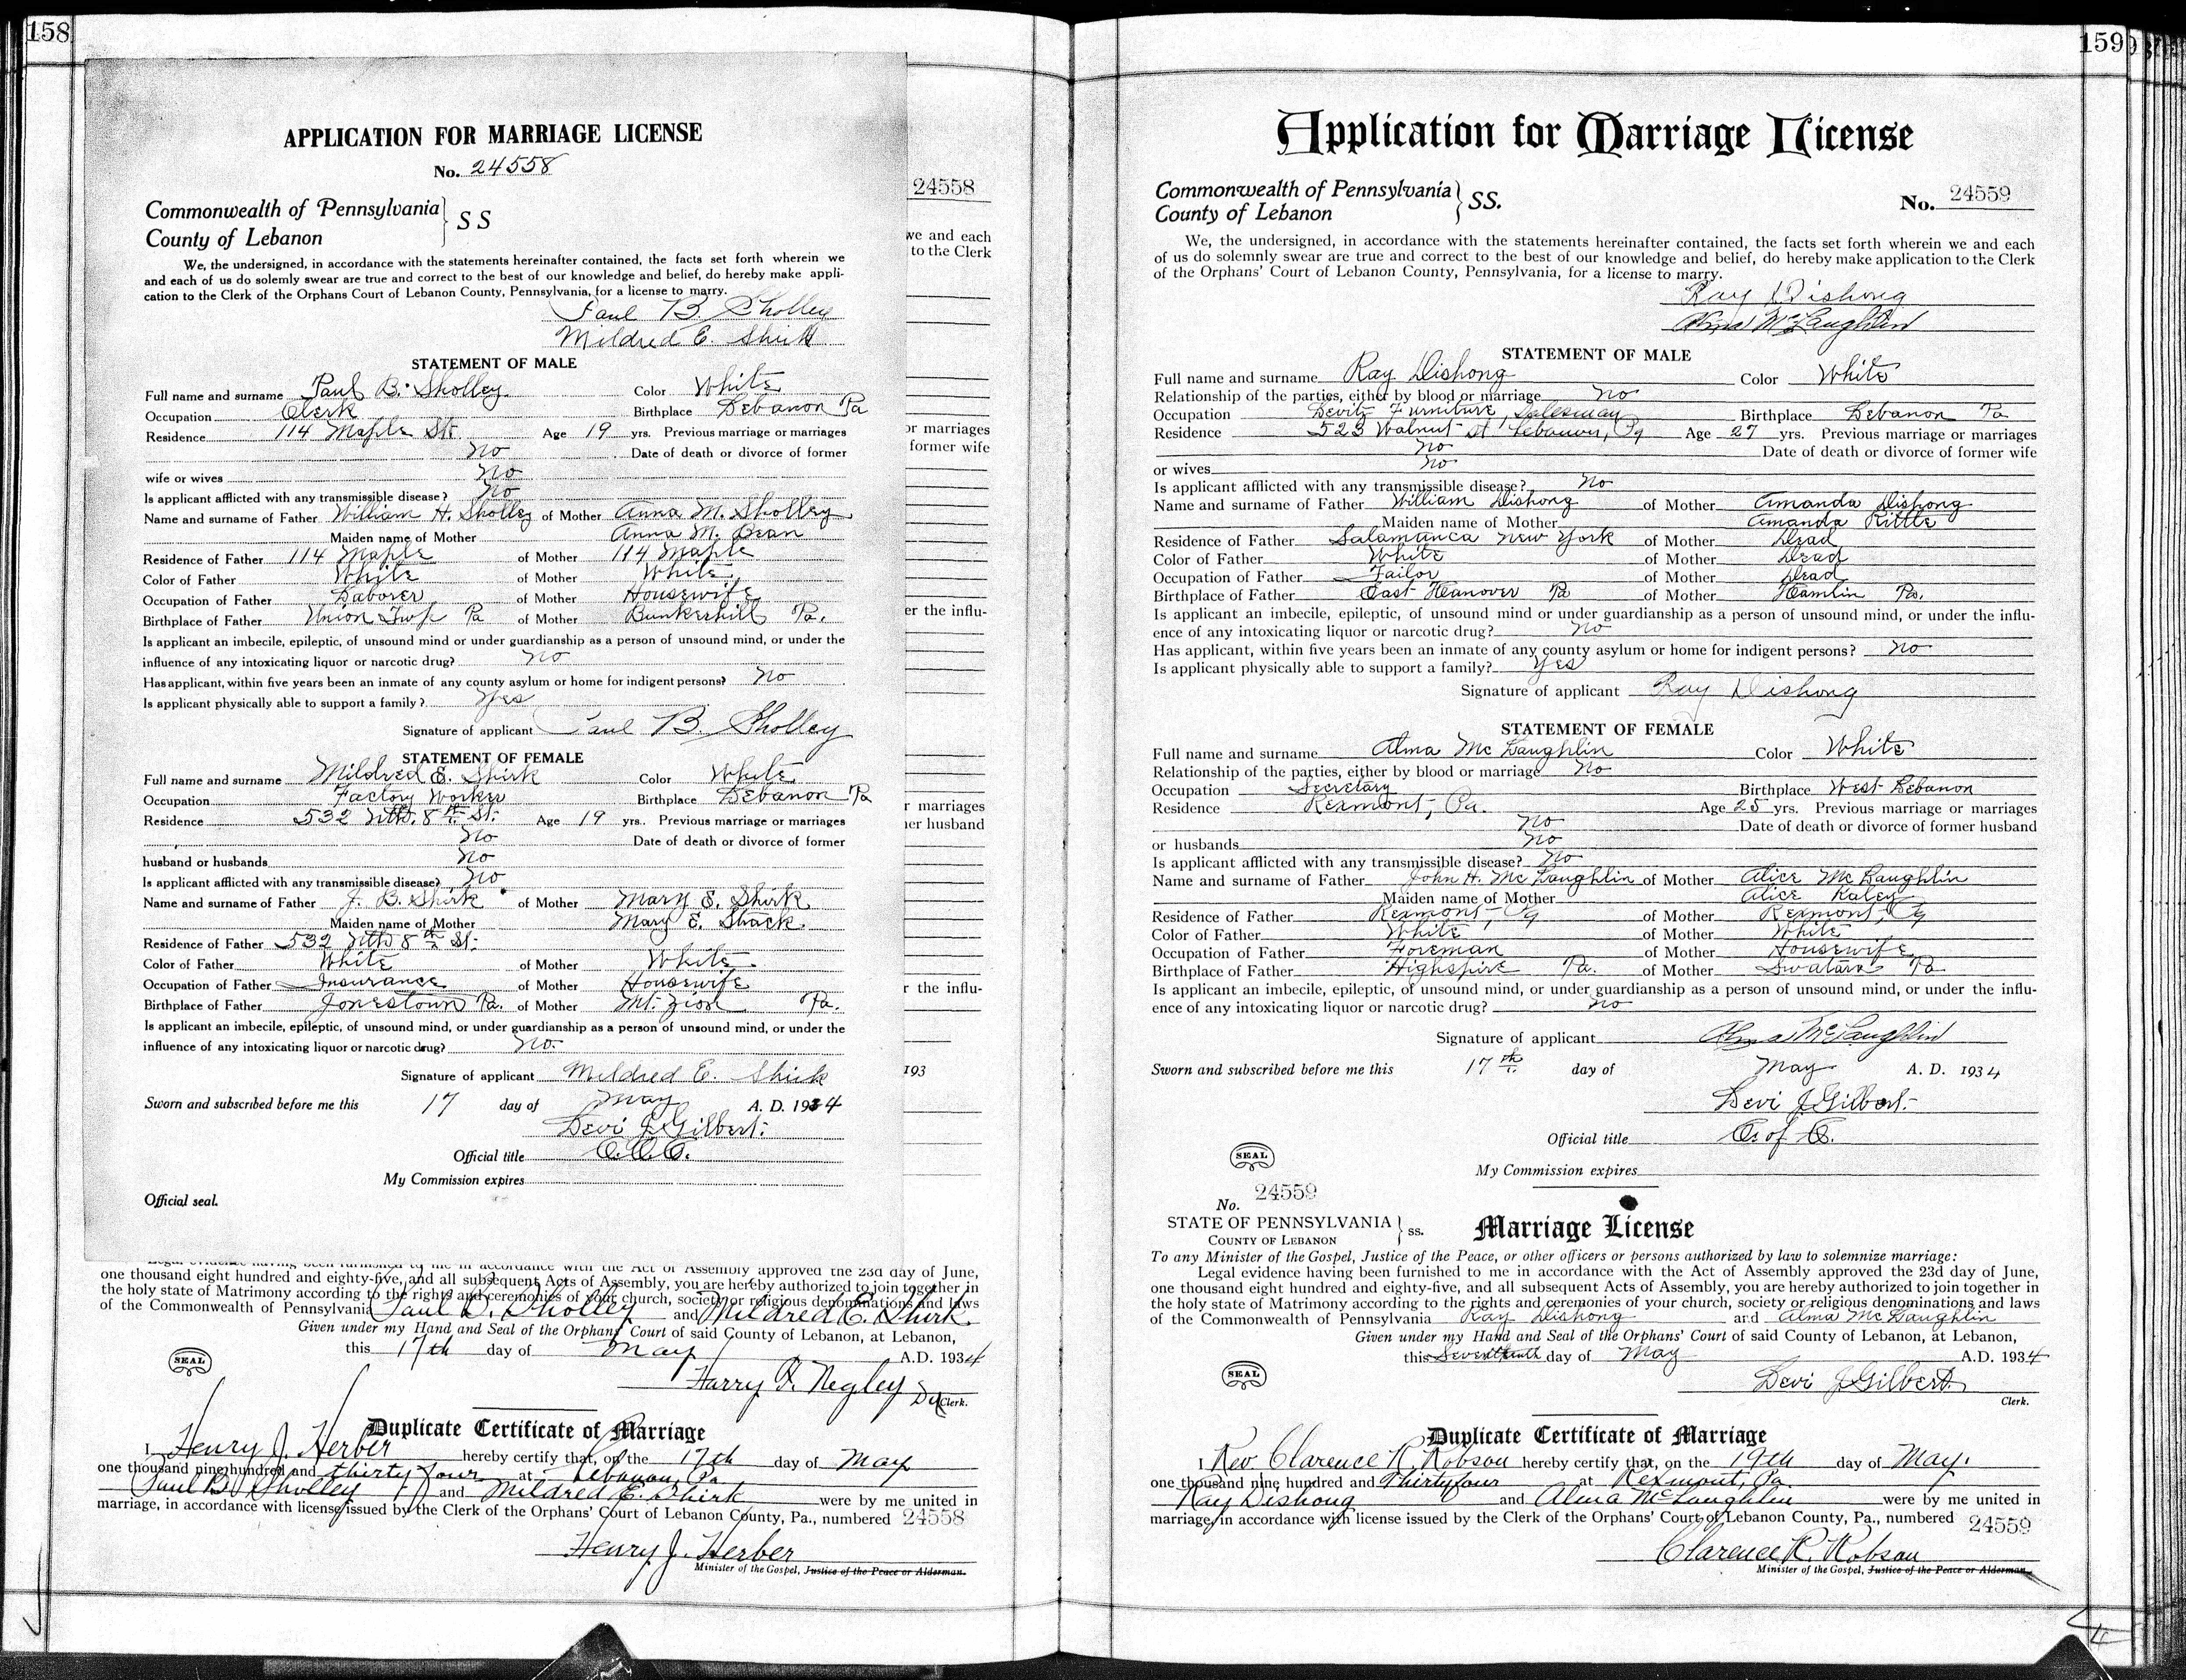 158
APPLICATION FOR MARRIAGE LICENSE
No. 24558
Commonwealth of Pennsylvania } SS
County of Lebanon
We, the undersigned, in accordance with the statements hereinafter contained, the facts set forth wherein we
and each of us do solemnly swear are true and correct to the best of our knowledge and belief, do hereby make appli-
cation to the Clerk of the Orphans Court of Lebanon County, Pennsylvania, for a license to marry.
Paul B. Sholley
Mildred E. Shirk
STATEMENT OF MALE
Full name and surname Paul B. Sholley Color White
Occupation Clerk Birthplace Lebanon Pa
Residence 114 Maple St. Age 19 yrs. Previous marriage or marriages
No Date of death or divorce of former
wife or wives No
Is applicant afflicted with any transmissible disease? No
Name and surname of Father William H. Sholley of Mother Anna M. Sholley
Maiden name of Mother Anna M. Bean
Residence of Father 114 Maple of Mother 114 Maple
Color of Father White of Mother White
Occupation of Father Laborer of Mother Housewife
Birthplace of Father Union Twp Pa of Mother Bunkerhill Pa.
Is applicant an imbecile, epileptic, of unsound mind or under guardianship as a person of unsound mind, or under the
influence of any intoxicating liquor or narcotic drug? No
Has applicant, within five years been an inmate of any county asylum or home for indigent persons? No
Is applicant physically able to support a family? Yes
Signature of applicant Paul B. Sholley
STATEMENT OF FEMALE
Full name and surname Mildred E. Shirk Color White
Occupation Factory Worker Birthplace Lebanon Pa
Residence 532 Nth. 8th St. Age 19 yrs. Previous marriage or marriages
No Date of death or divorce of former
husband or husbands No
Is applicant afflicted with any transmissible disease? No
Name and surname of Father J. B. Shirk of Mother Mary E. Shirk
Maiden name of Mother Mary E. Strack
Residence of Father 532 Nth 8th St.
Color of Father White of Mother White
Occupation of Father Insurance of Mother Housewife
Birthplace of Father Jonestown Pa. of Mother Mt. Zion Pa.
Is applicant an imbecile, epileptic, of unsound mind, or under guardianship as a person of unsound mind, or under the
influence of any intoxicating liquor or narcotic drug? No.
Signature of applicant Mildred E. Shirk
Sworn and subscribed before me this 17 day of May A. D. 1934
Levi J Gilbert.
Official title C.O.C.
My Commission expires
Official seal.
24558
we and each
to the Clerk
or marriages
former wife
er the influ-
r marriages
er husband
r the influ-
193
Legal evidence having been furnished to me in accordance with the Act of Assembly approved the 23d day of June,
one thousand eight hundred and eighty-five, and all subsequent Acts of Assembly, you are hereby authorized to join together in
the holy state of Matrimony according to the rights and ceremonies of your church, society or religious denominations and laws
of the Commonwealth of Pennsylvania Paul B. Sholley and Mildred E. Shirk
Given under my Hand and Seal of the Orphans' Court of said County of Lebanon, at Lebanon,
this 17th day of May A.D. 1934
SEAL
Harry F. Negley Clerk.
Duplicate Certificate of Marriage
I Henry J. Herber hereby certify that, on the 17th day of May
one thousand nine hundred and thirty four at Lebanon, Pa
Paul B. Sholley and Mildred E. Shirk were by me united in
marriage, in accordance with license issued by the Clerk of the Orphans' Court of Lebanon County, Pa., numbered 24558
Henry J. Herber
Minister of the Gospel, Justice of the Peace or Alderman.
159
Application for Marriage License
Commonwealth of Pennsylvania } SS.
County of Lebanon
No. 24559
We, the undersigned, in accordance with the statements hereinafter contained, the facts set forth wherein we and each
of us do solemnly swear are true and correct to the best of our knowledge and belief, do hereby make application to the Clerk
of the Orphans' Court of Lebanon County, Pennsylvania, for a license to marry.
Ray Dishong
Alma McLaughlin
STATEMENT OF MALE
Full name and surname Ray Dishong Color White
Relationship of the parties, either by blood or marriage No
Occupation Levitz Furniture, Salesman Birthplace Lebanon Pa
Residence 523 Walnut St Lebanon, Pa Age 27 yrs. Previous marriage or marriages
No Date of death or divorce of former wife
or wives No
Is applicant afflicted with any transmissible disease? No
Name and surname of Father William Dishong of Mother Amanda Dishong
Maiden name of Mother Amanda Kittle
Residence of Father Salamanca New York of Mother Dead
Color of Father White of Mother Dead
Occupation of Father Tailor of Mother Dead
Birthplace of Father East Hanover Pa of Mother Hamlin Pa.
Is applicant an imbecile, epileptic, of unsound mind or under guardianship as a person of unsound mind, or under the influ-
ence of any intoxicating liquor or narcotic drug? No
Has applicant, within five years been an inmate of any county asylum or home for indigent persons? No
Is applicant physically able to support a family? Yes
Signature of applicant Ray Dishong
STATEMENT OF FEMALE
Full name and surname Alma Mc Laughlin Color White
Relationship of the parties, either by blood or marriage No
Occupation Secretary Birthplace West Lebanon
Residence Rexmont, Pa. Age 25 yrs. Previous marriage or marriages
No Date of death or divorce of former husband
or husbands No
Is applicant afflicted with any transmissible disease? No
Name and surname of Father John H. Mc Laughlin of Mother Alice Mc Laughlin
Maiden name of Mother Alice Kaley
Residence of Father Rexmont, Pa of Mother Rexmont, Pa
Color of Father White of Mother White
Occupation of Father Foreman of Mother Housewife
Birthplace of Father Highspire Pa. of Mother Swatara Pa
Is applicant an imbecile, epileptic, of unsound mind, or under guardianship as a person of unsound mind, or under the influ-
ence of any intoxicating liquor or narcotic drug? No
Signature of applicant Alma McLaughlin
Sworn and subscribed before me this 17th day of May A. D. 1934
Levi J Gilbert.
Official title C. of C.
SEAL
My Commission expires
No. 24559
STATE OF PENNSYLVANIA } ss.
COUNTY OF LEBANON
Marriage License
To any Minister of the Gospel, Justice of the Peace, or other officers or persons authorized by law to solemnize marriage:
Legal evidence having been furnished to me in accordance with the Act of Assembly approved the 23d day of June,
one thousand eight hundred and eighty-five, and all subsequent Acts of Assembly, you are hereby authorized to join together in
the holy state of Matrimony according to the rights and ceremonies of your church, society or religious denominations and laws
of the Commonwealth of Pennsylvania Ray Dishong and Alma McLaughlin
Given under my Hand and Seal of the Orphans' Court of said County of Lebanon, at Lebanon,
this Seventeenth day of May A.D. 1934
SEAL
Levi J Gilbert
Clerk.
Duplicate Certificate of Marriage
I Rev Clarence R. Robson hereby certify that, on the 19th day of May.
one thousand nine hundred and Thirty four at Rexmont, Pa
Ray Dishong and Alma McLaughlin were by me united in
marriage, in accordance with license issued by the Clerk of the Orphans' Court of Lebanon County, Pa., numbered 24559
Clarence R. Robson
Minister of the Gospel, Justice of the Peace or Alderman.